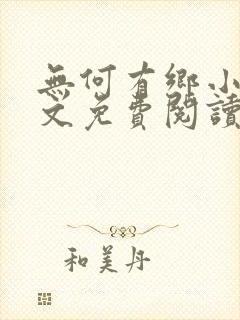 無何有鄉小
文免費閱讀
和美丹